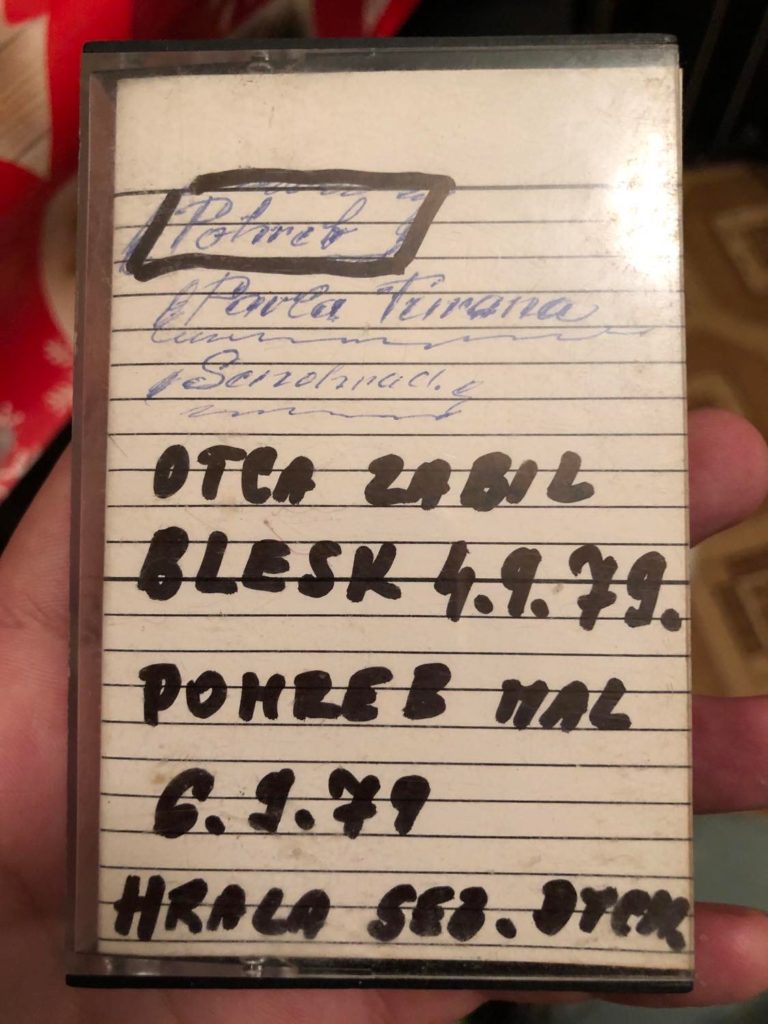 Pohreb
Pavla Turana
OTCA ZABIL
BLESK 4.9.79.
POHREB MAL
6.9.79
HRALA SEB. DYCH